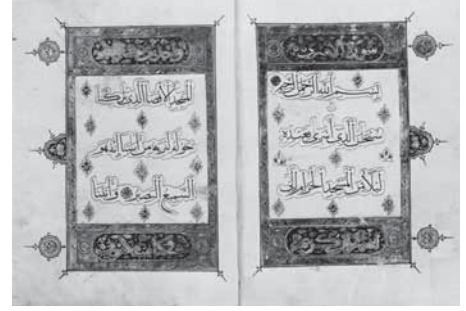 بسم الله الرحمن الرحيم
سبحن الذى اسرى بعبده
ليلا من المسجد الحرام الى
المسجد الاقصا الذى بركنا
حوله لنريه من ايتنا انه هو
السميع البصير واتينا